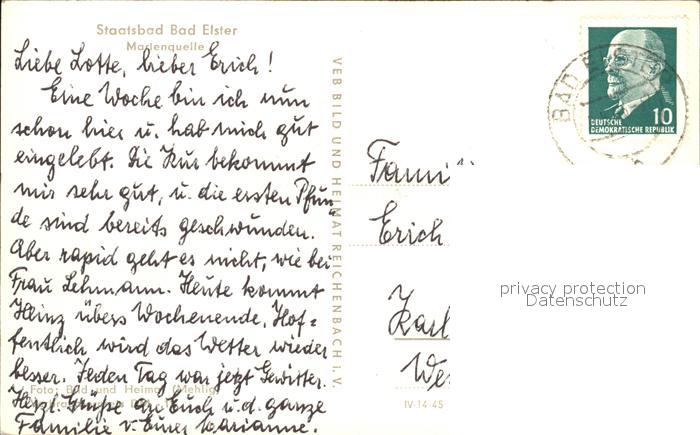 Staatsbad Bad Elster
Marienquelle
Liebe Lotte, lieber Erich!
Eine Woche bin ich nun
schon hier u. hab mich gut
eingelebt. Die Kur bekommt
mir sehr gut, u. die ersten Pfun
de sind bereits geschwunden.
Aber rapid geht es nicht, wie bei
Frau Lehmann. Heute kommt
Heinz übers Wochenende. Hof=
fentlich wird das Wetter wieder
besser. Jeden Tag war jetzt Gewitter.
Foto: Bild und Heimat (Mehlig)
Herzl. Grüße an Euch u. d. ganze
Familie v. Eurer Marianne.
VEB BILD UND HEIMAT REICHENBACH I. V.
BAD ELSTER
10
DEUTSCHE
DEMOKRATISCHE REPUBLIK
Famili
Erich
Karl
We
privacy protection
Datenschutz
IV-14-45